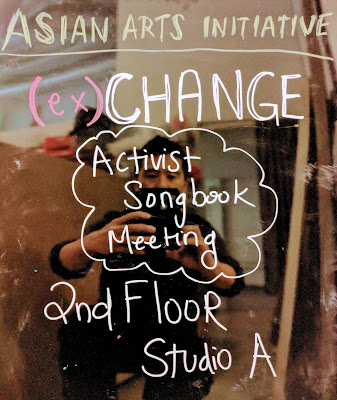 ASIAN ARTS INITIATIVE
(ex)CHANGE
Activist
Songbook
Meeting
2nd FlooR
Studio A